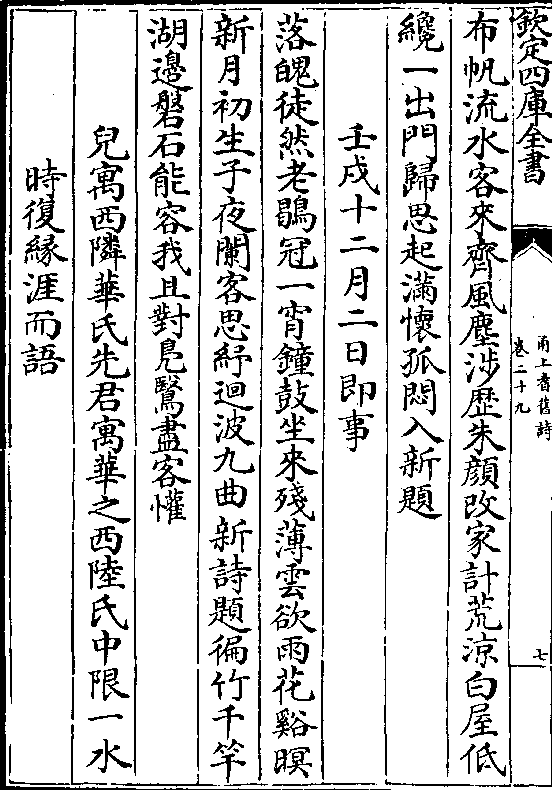 欽定四庫全書
甬上耆舊詩
卷二十九
七
布帆流水客來齊風塵涉歴朱顔改家計荒凉白屋低
纔一出門歸思起滿懷孤悶入新題
壬戌十二月二日即事
落魄徒然老鶡冠一宵鐘鼓坐來殘薄雲欲雨花谿暝
新月初生子夜闌客思紆迴波九曲新詩題徧竹千竿
湖邉磐石能容我且對鳬鷖盡客懽
兒寓西隣華氏先君寓華之西陸氏中限一水
時復緣涯而語